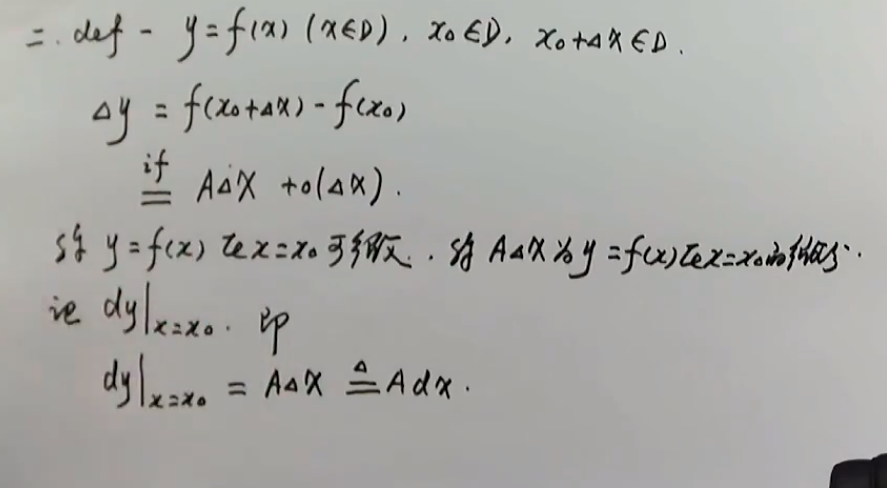 二. def - y=f(x) (x∈D), x₀∈D, x₀+Δx∈D.
Δy = f(x₀+Δx)-f(x₀)
if
= AΔx +o(Δx).
称 y=f(x) 在x=x₀可微. 称 AΔx为y=f(x)在x=x₀的微分.
记 dy|x=x₀. 即
dy|x=x₀ = AΔx ≜ Adx.